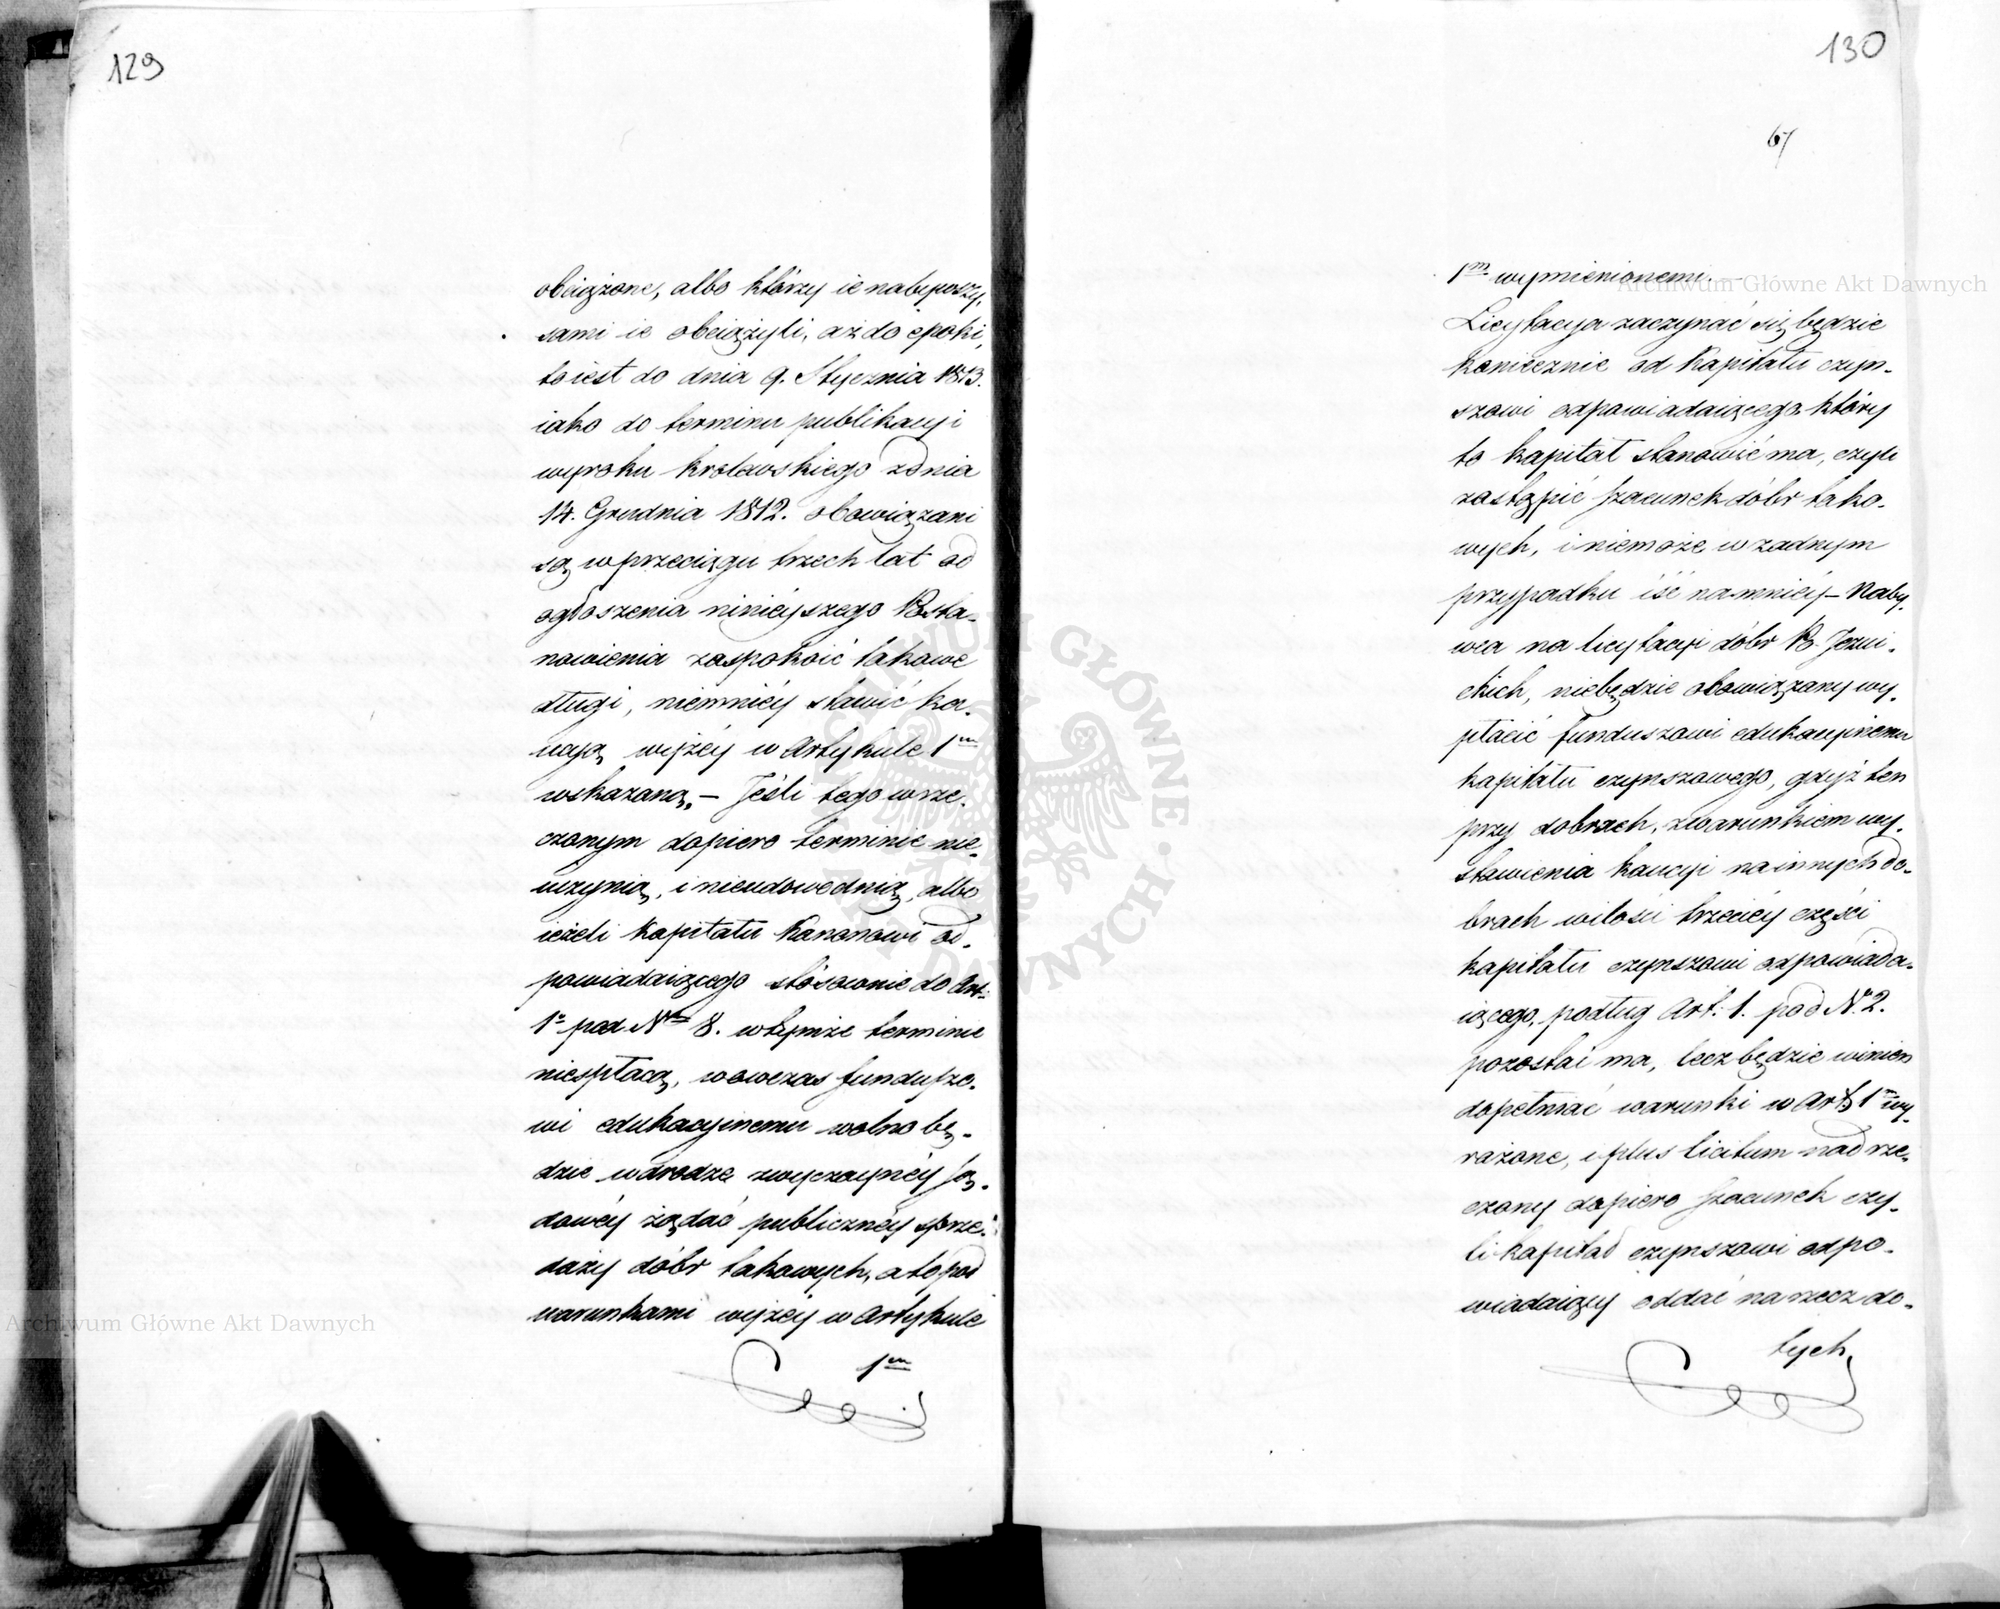 129
obciążone, albo którzy ie nabywszy,
sami ie obciążyli, aż do epoki,
to iest do dnia 9. Stycznia 1813.
iako do terminu publikacyi
wyroku królewskiego z dnia
14. Grudnia 1812. obowiązani
są w przeciągu trzech lat od
ogłoszenia ninieyszego Posta-
nowienia zaspokoić takowe
długi, niemniéy stawić ka-
ucyą wyżéy w Artykule 1m
wskazaną. — Jeśli tego w rze-
czonym dopiero terminie nie-
uczynią, i nieudowodnią, albo
ieżeli kapitału Kanonowi od-
powiadaiącego stósownie do Art:
1o pod Nrm 8. w tymże terminie
niespłacą, wówczas funduszo-
wi edukacyinemu wolno bę-
dzie w drodze zwyczaynéy są-
dowéy żądać publicznéy sprze-
daży dóbr takowych, a to pod
warunkami wyżéy w Artykule
1m
130
67
1m wymienionemi. —
Licytacya zaczynać się będzie
koniecznie od Kapitału czyn-
szowi odpowiadaiącego który
to kapitał stanowić ma, czyli
zastąpić szacunek dóbr tako-
wych, i niemoże w żadnym
przypadku iść na mniéy — Naby-
wca na licytacyi dóbr Po Jezui-
ckich, niebędzie obowiązany wy-
płacić funduszowi edukacyinemu
kapitału czynszowego, gdyż ten
przy dobrach, z warunkiem wy-
stawienia kaucyi na innych do-
brach w ilości trzeciéy części
kapitału czynszowi odpowiada-
iącego, podług Art: 1. pod Nr 2.
pozostać ma, lecz będzie winien
dopełniać warunki w Art: 1m wy-
rażone, i plus licitum nad rze-
czony dopiero szacunek czy-
li kapitał czynszowi odpo-
wiadaiący oddać na rzecz do-
tych
Archiwum Główne Akt Dawnych
Archiwum Główne Akt Dawnych
ARCHIWUM GŁÓWNE AKT DAWNYCH